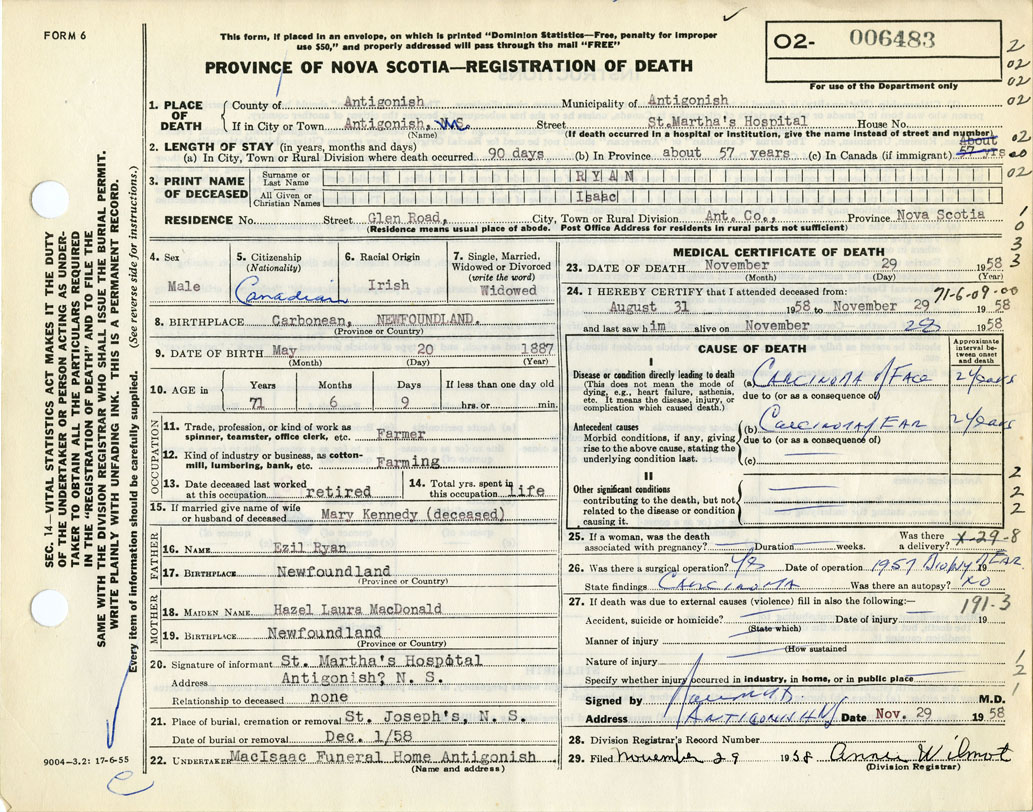 FORM 6
This form, if placed in an envelope, on which is printed "Dominion Statistics—Free, penalty for improper
use $50," and properly addressed will pass through the mail "FREE"
PROVINCE OF NOVA SCOTIA—REGISTRATION OF DEATH
02- 006483
For use of the Department only
2
02
02
02
02
02
1
0
3
3
SEC. 14—VITAL STATISTICS ACT MAKES IT THE DUTY
OF THE UNDERTAKER OR PERSON ACTING AS UNDER-
TAKER TO OBTAIN ALL THE PARTICULARS REQUIRED
IN THE "REGISTRATION OF DEATH" AND TO FILE THE
SAME WITH THE DIVISION REGISTRAR WHO SHALL ISSUE THE BURIAL PERMIT.
WRITE PLAINLY WITH UNFADING INK. THIS IS A PERMANENT RECORD.
Every item of information should be carefully supplied. (See reverse side for instructions.)
1. PLACE OF DEATH
County of Antigonish Municipality of Antigonish
If in City or Town Antigonish, N.S. Street St.Martha's Hospital House No.
(Name) (If death occurred in a hospital or institution, give the name instead of street and number)
2. LENGTH OF STAY (in years, months and days) About
(a) In City, Town or Rural Division where death occurred 90 days (b) In Province about 57 years (c) In Canada (if immigrant) 57 yrs
3. PRINT NAME OF DECEASED
Surname or Last Name RYAN
All Given or Christian Names Isaac
RESIDENCE No. Street Glen Road, City, Town or Rural Division Ant. Co., Province Nova Scotia
(Residence means usual place of abode. Post Office Address for residents in rural parts not sufficient)
4. Sex Male
5. Citizenship (Nationality) Canadian
6. Racial Origin Irish
7. Single, Married, Widowed or Divorced (write the word) Widowed
8. BIRTHPLACE Carbonean, NEWFOUNDLAND.
(Province or Country)
9. DATE OF BIRTH May 20 1887
(Month) (Day) (Year)
10. AGE in Years Months Days If less than one day old
71 6 9 hrs. or min.
OCCUPATION
11. Trade, profession, or kind of work as
spinner, teamster, office clerk, etc. Farmer
12. Kind of industry or business, as cotton-
mill, lumbering, bank, etc. Farming
13. Date deceased last worked at this occupation retired
14. Total yrs. spent in this occupation life
15. If married give name of wife
or husband of deceased Mary Kennedy (deceased)
FATHER
16. NAME Ezil Ryan
17. BIRTHPLACE Newfoundland
(Province or Country)
MOTHER
18. MAIDEN NAME Hazel Laura MacDonald
19. BIRTHPLACE Newfoundland
(Province or Country)
20. Signature of informant St. Martha's Hospital
Address Antigonish? N. S.
Relationship to deceased none
21. Place of burial, cremation or removal St. Joseph's, N. S.
Date of burial or removal Dec. 1/58
22. UNDERTAKER MacIsaac Funeral Home Antigonish
(Name and address)
9004-3.2: 17-6-55
MEDICAL CERTIFICATE OF DEATH
23. DATE OF DEATH November 29 1958
(Month) (Day) (Year)
24. I HEREBY CERTIFY that I attended deceased from: 71-6-09-00
August 31 1958 to November 29 1958
and last saw him alive on November 28 1958
CAUSE OF DEATH
Approximate interval between onset and death
I
Disease or condition directly leading to death
(This does not mean the mode of
dying, e.g., heart failure, asthenia,
etc. It means the disease, injury, or
complication which caused death.)
(a) CARCINOMA of FACE 2 years
due to (or as a consequence of)
Antecedent causes
Morbid conditions, if any, giving
rise to the above cause, stating the
underlying condition last.
(b) CARCINOMA of EAR 2 years
due to (or as a consequence of)
(c)
II
Other significant conditions
contributing to the death, but not
related to the disease or condition
causing it.
2
2
2
25. If a woman, was the death associated with pregnancy? Duration weeks. Was there a delivery? X-29-8
26. Was there a surgical operation? Yes Date of operation 1957 Biopsy EAR 19
State findings CARCINOMA Was there an autopsy? NO
27. If death was due to external causes (violence) fill in also the following:— 191-3
Accident, suicide or homicide? Date of injury 19
(State which)
Manner of injury
(How sustained
Nature of injury
Specify whether injury occurred in industry, in home, or in public place
1
2
1
Signed by M.D.
Address ANTIGONISH NS Date Nov. 29 1958
28. Division Registrar's Record Number
29. Filed November 29 1958 Anna Wilmot
(Division Registrar)